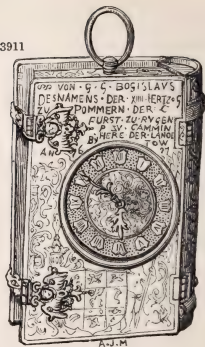 3911
VON · G · G · BOGISLAVS
DESNAMENS · DER · XIIII · HERTZOG
ZU POMMERN · DER ·
FURST · ZU · RVGEN
CAMMIN
HERE DER · LANDE
TOW
A·J·M